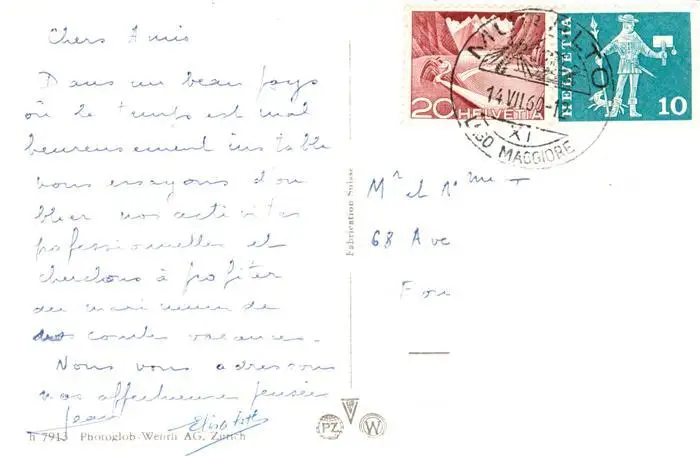 Chers Amis
Dans un beau pays
où le temps est mal
heureusement instable
nous essayons d'ou
blier nos activités
professionnelles et
cherchons à profiter
au maximum de
courtes vacances.
Nous vous adressons
nos affectueuses pensées
Jean Elisabeth
h 7913 Photoglob-Wehrli AG, Zürich
Fabrication Suisse
PZ V W
20 HELVETIA
HELVETIA 10
MURALTO
14.VII.60
XI
LAGO MAGGIORE
Mr et Mme
68 Ave